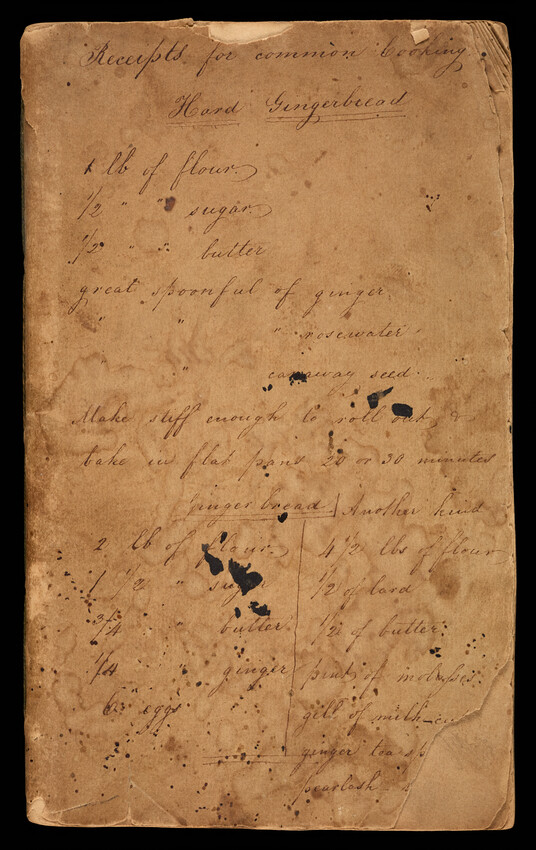 Receipts for common Cooking
Hard Gingerbread
1 lb of flour
1/2 " " sugar
1/2 " " butter
great spoonful of ginger
" " " rosewater
" caraway seed
Make stiff enough to roll out &
bake in flat pans 20 or 30 minutes
Ginger bread
2 lb of flour
1 1/2 " sugar
3/4 " butter
1/4 " ginger
6 eggs
Another kind
4 1/2 lbs of flour
1/2 of lard
1/2 of butter
pint of molasses
gill of milk
ginger
pearlash